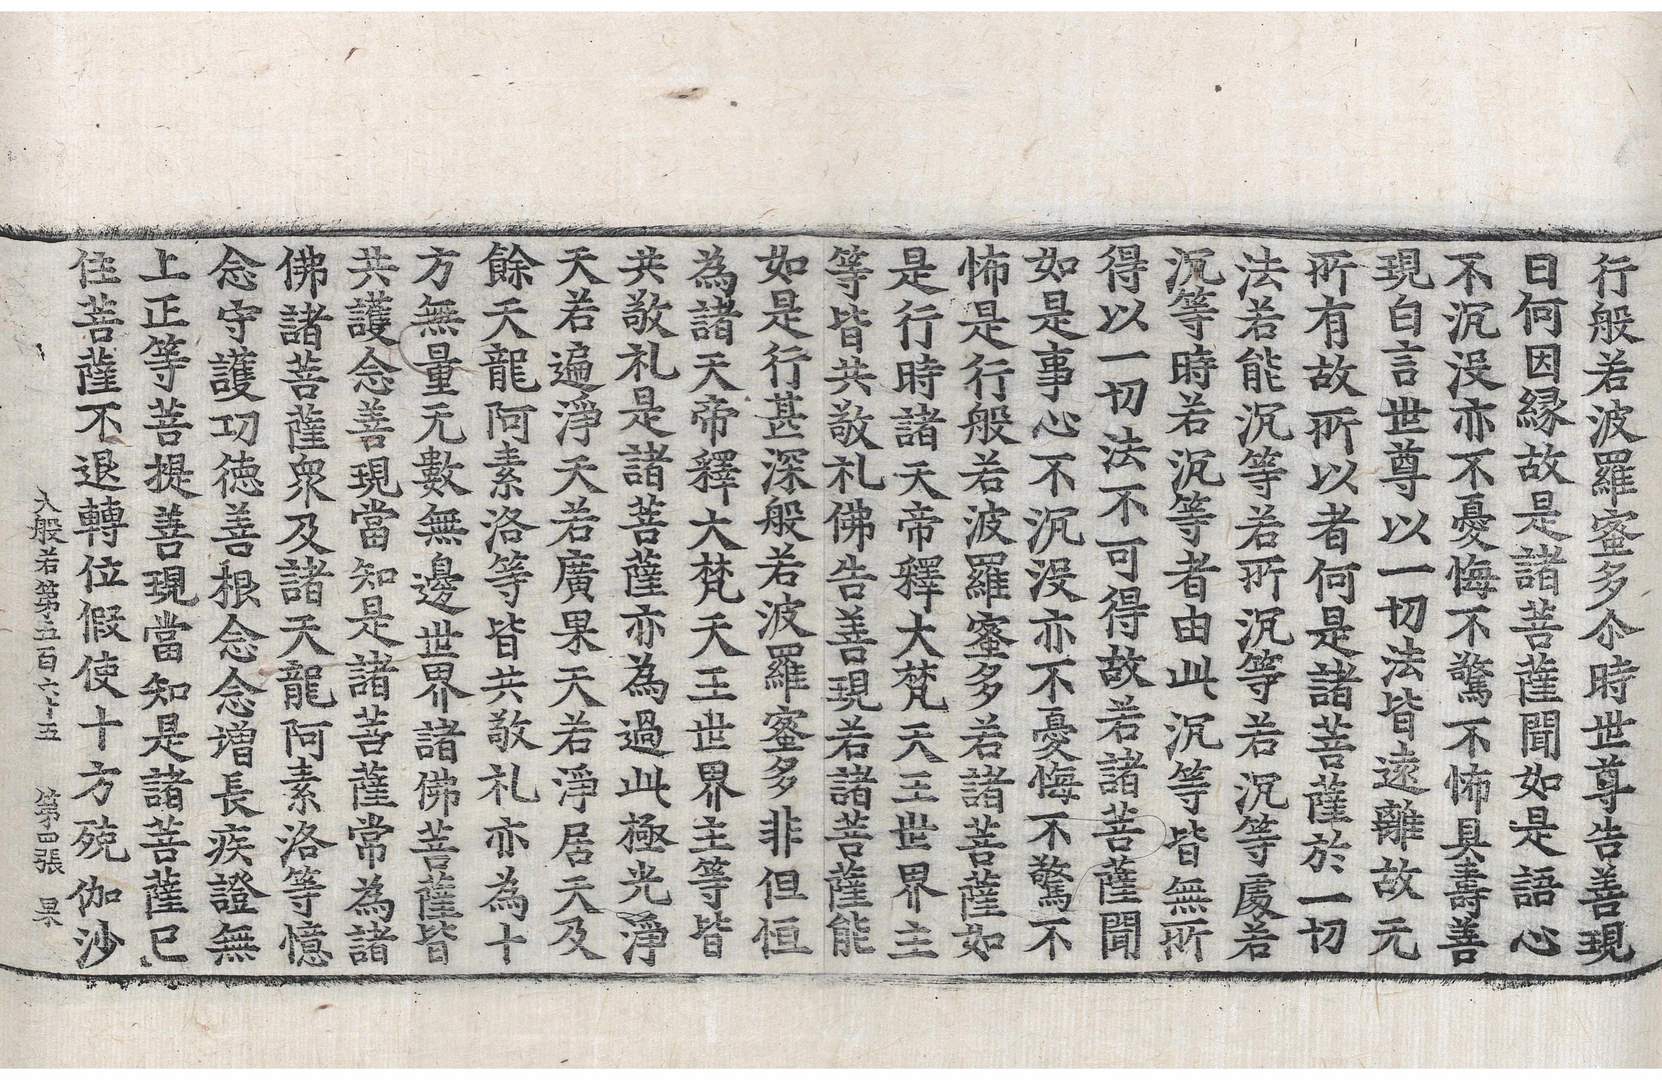 行般若波羅蜜多尒時世尊告善現
曰何因縁故是諸菩薩聞如是語心
不沉没亦不憂悔不驚不怖具壽善
現白言世尊以一切法皆遠離故无
所有故所以者何是諸菩薩於一切
法若能沉等若所沉等若沉等處若
沉等時若沉等者由此沉等皆無所
得以一切法不可得故若諸菩薩聞
如是事心不沉没亦不憂悔不驚不
怖是行般若波羅蜜多若諸菩薩如
是行時諸天帝釋大梵天王世界主
等皆共敬礼佛告善現若諸菩薩能
如是行甚深般若波羅蜜多非但恒
為諸天帝釋大梵天王世界主等皆
共敬礼是諸菩薩亦為過此極光淨
天若遍淨天若廣果天若淨居天及
餘天龍阿素洛等皆共敬礼亦為十
方無量无數無邊世界諸佛菩薩皆
共護念善現當知是諸菩薩常為諸
佛諸菩薩衆及諸天龍阿素洛等憶
念守護功德善根念念增長疾證無
上正等菩提善現當知是諸菩薩已
住菩薩不退轉位假使十方殑伽沙
大般若第五百六十五 第四張 果